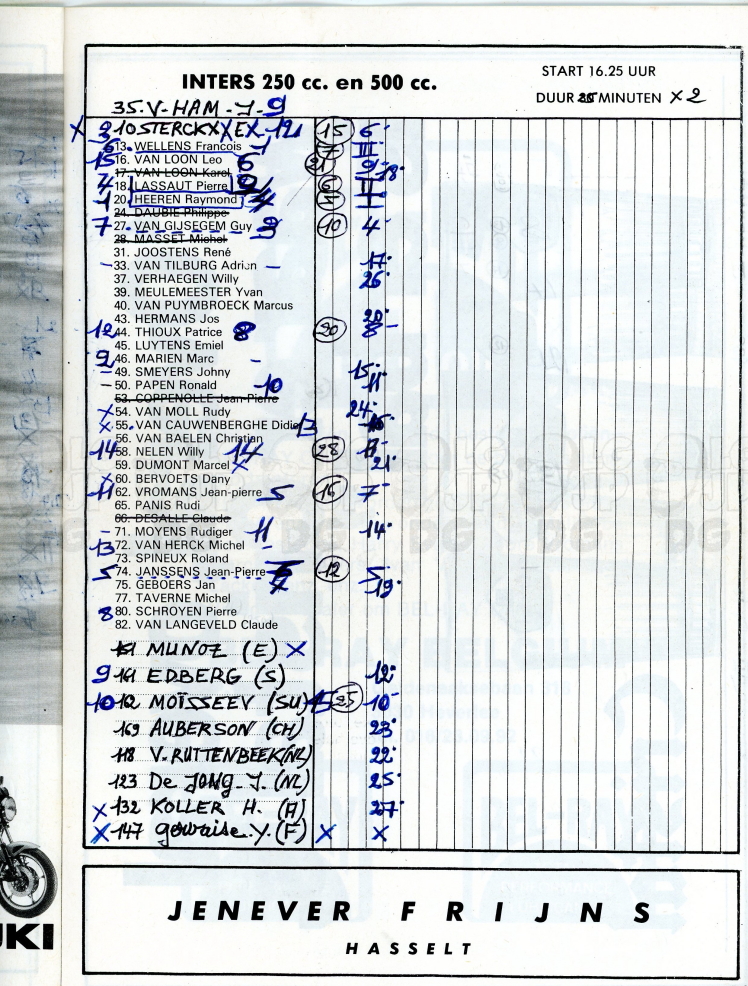 INTERS 250 cc. en 500 cc.
START 16.25 UUR
DUUR MINUTEN X 2
35. V-HAM - J - 9
X 10 STERCKX E 12 15 6
13. WELLENS Francois 7 III
15 16. VAN LOON Leo 6 21 9
17. VAN LOON Karel 18
4 18. LASSAUT Pierre II
1 20. HEEREN Raymond 4 I
24. DAUBIE Philippe
7 27. VAN GIJSEGEM Guy 10 4
28. MASSET Michel
31. JOOSTENS René
– 33. VAN TILBURG Adrien – 17
37. VERHAEGEN Willy 26
39. MEULEMEESTER Yvan
40. VAN PUYMBROECK Marcus
43. HERMANS Jos 20
12 44. THIOUX Patrice 8 20 8 –
45. LUYTENS Emiel
2 46. MARIEN Marc –
– 49. SMEYERS Johny 15
– 50. PAPEN Ronald 10 11
53. COPPENOLLE Jean-Pierre
X 54. VAN MOLL Rudy 24
X 55. VAN CAUWENBERGHE Didier 13
56. VAN BAELEN Christian
14 58. NELEN Willy 14 28
59. DUMONT Marcel X 21
X 60. BERVOETS Dany
11 62. VROMANS Jean-pierre 5 16 7 –
65. PANIS Rudi
66. DESALLE Claude
– 71. MOYENS Rudiger 11 14
13 72. VAN HERCK Michel –
73. SPINEUX Roland
5 74. JANSSENS Jean-Pierre 12 5
75. GEBOERS Jan X 19
77. TAVERNE Michel
8 80. SCHROYEN Pierre
82. VAN LANGEVELD Claude
151 MUNOZ (E) X
9 161 EDBERG (S) 12
10 162 MOÏSSEEV (SU) 15 25 10
169 AUBERSON (CH) 23
118 V. RUTTENBEEK (NL) 22
123 De JONG - J. (NL) 25
X 132 KOLLER H. (A) 27
X 147 gervaise. Y. (F) X X
JENEVER FRIJNS
HASSELT
UKI